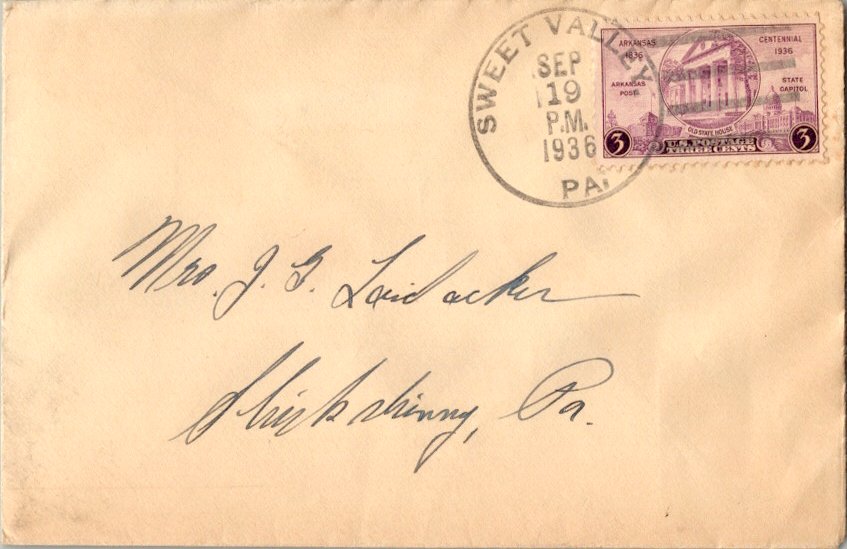 SWEET VALLEY
SEP
19
P.M.
1936
PA.
ARKANSAS
1836
CENTENNIAL
1936
ARKANSAS
POST
STATE
CAPITOL
OLD STATE HOUSE
3
U.S. POSTAGE
THREE CENTS
3
Mrs. J. G. Laidacker
Shickshinny, Pa.